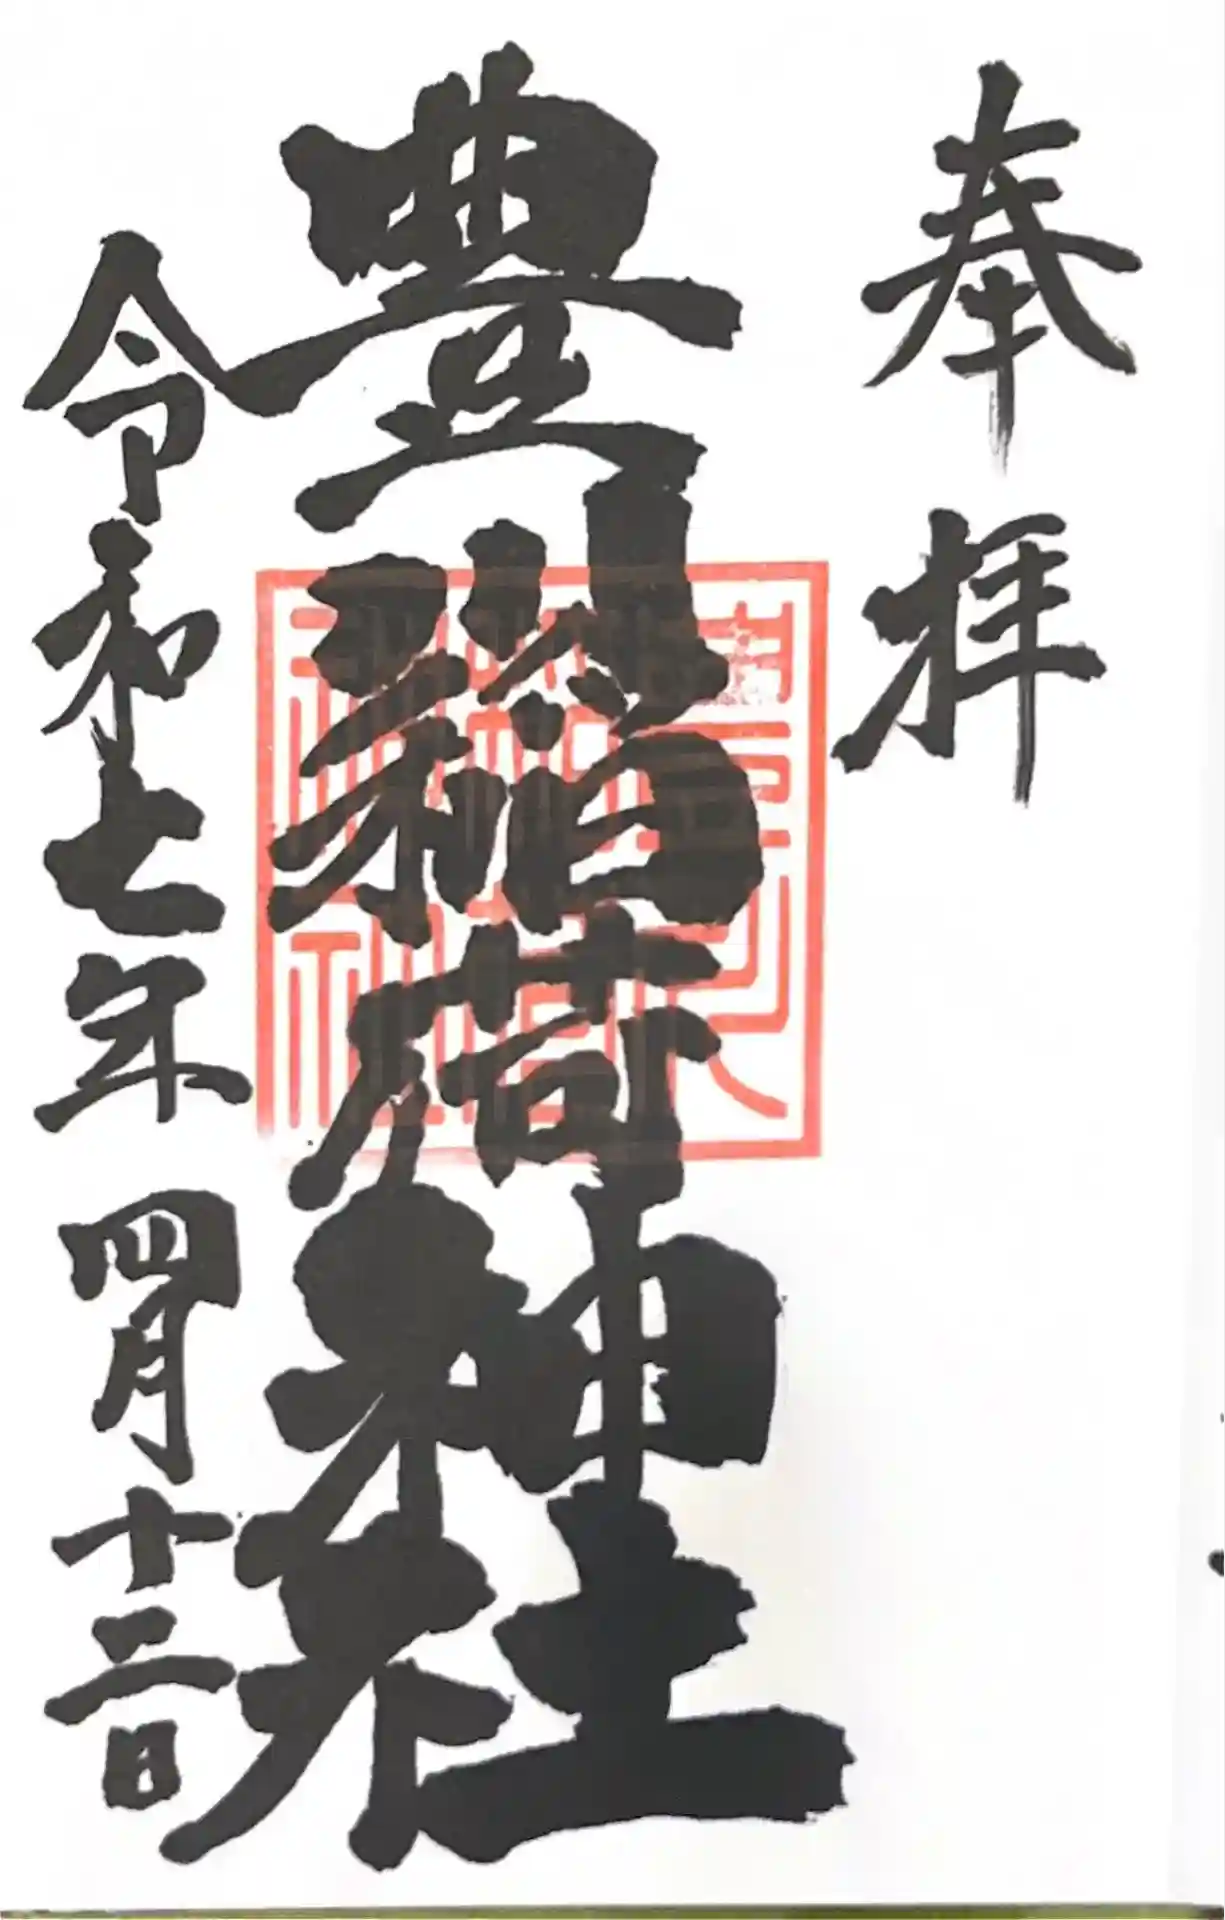 奉拝
豊川稲荷神社
令和七年四月十二日